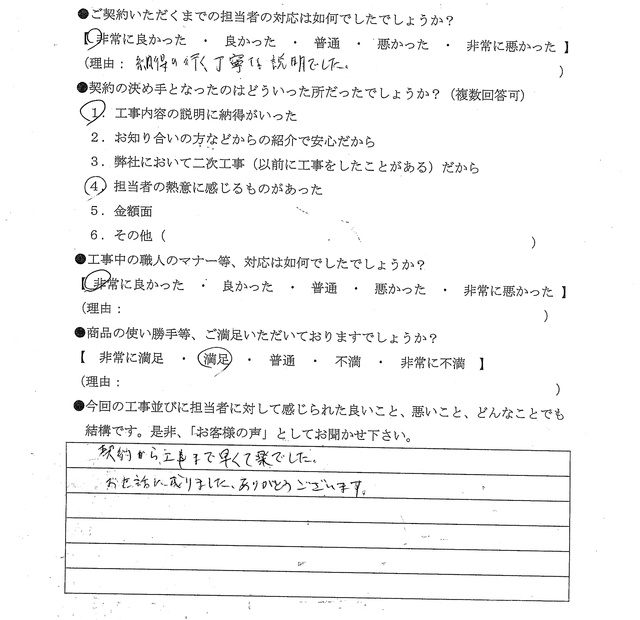 ●ご契約いただくまでの担当者の対応は如何でしたでしょうか？
【 非常に良かった ・ 良かった ・ 普通 ・ 悪かった ・ 非常に悪かった 】
（理由： 納得の行く丁寧な説明でした。 ）
●契約の決め手となったのはどういった所だったでしょうか？（複数回答可）
１．工事内容の説明に納得がいった
２．お知り合いの方などからの紹介で安心だから
３．弊社において二次工事（以前に工事をしたことがある）だから
４．担当者の熱意に感じるものがあった
５．金額面
６．その他（ ）
●工事中の職人のマナー等、対応は如何でしたでしょうか？
【 非常に良かった ・ 良かった ・ 普通 ・ 悪かった ・ 非常に悪かった 】
（理由： ）
●商品の使い勝手等、ご満足いただいておりますでしょうか？
【 非常に満足 ・ 満足 ・ 普通 ・ 不満 ・ 非常に不満 】
（理由： ）
●今回の工事並びに担当者に対して感じられた良いこと、悪いこと、どんなことでも
結構です。是非、「お客様の声」としてお聞かせ下さい。
契約から工事まで早くて楽でした。
お世話に成りました、ありがとうございます。